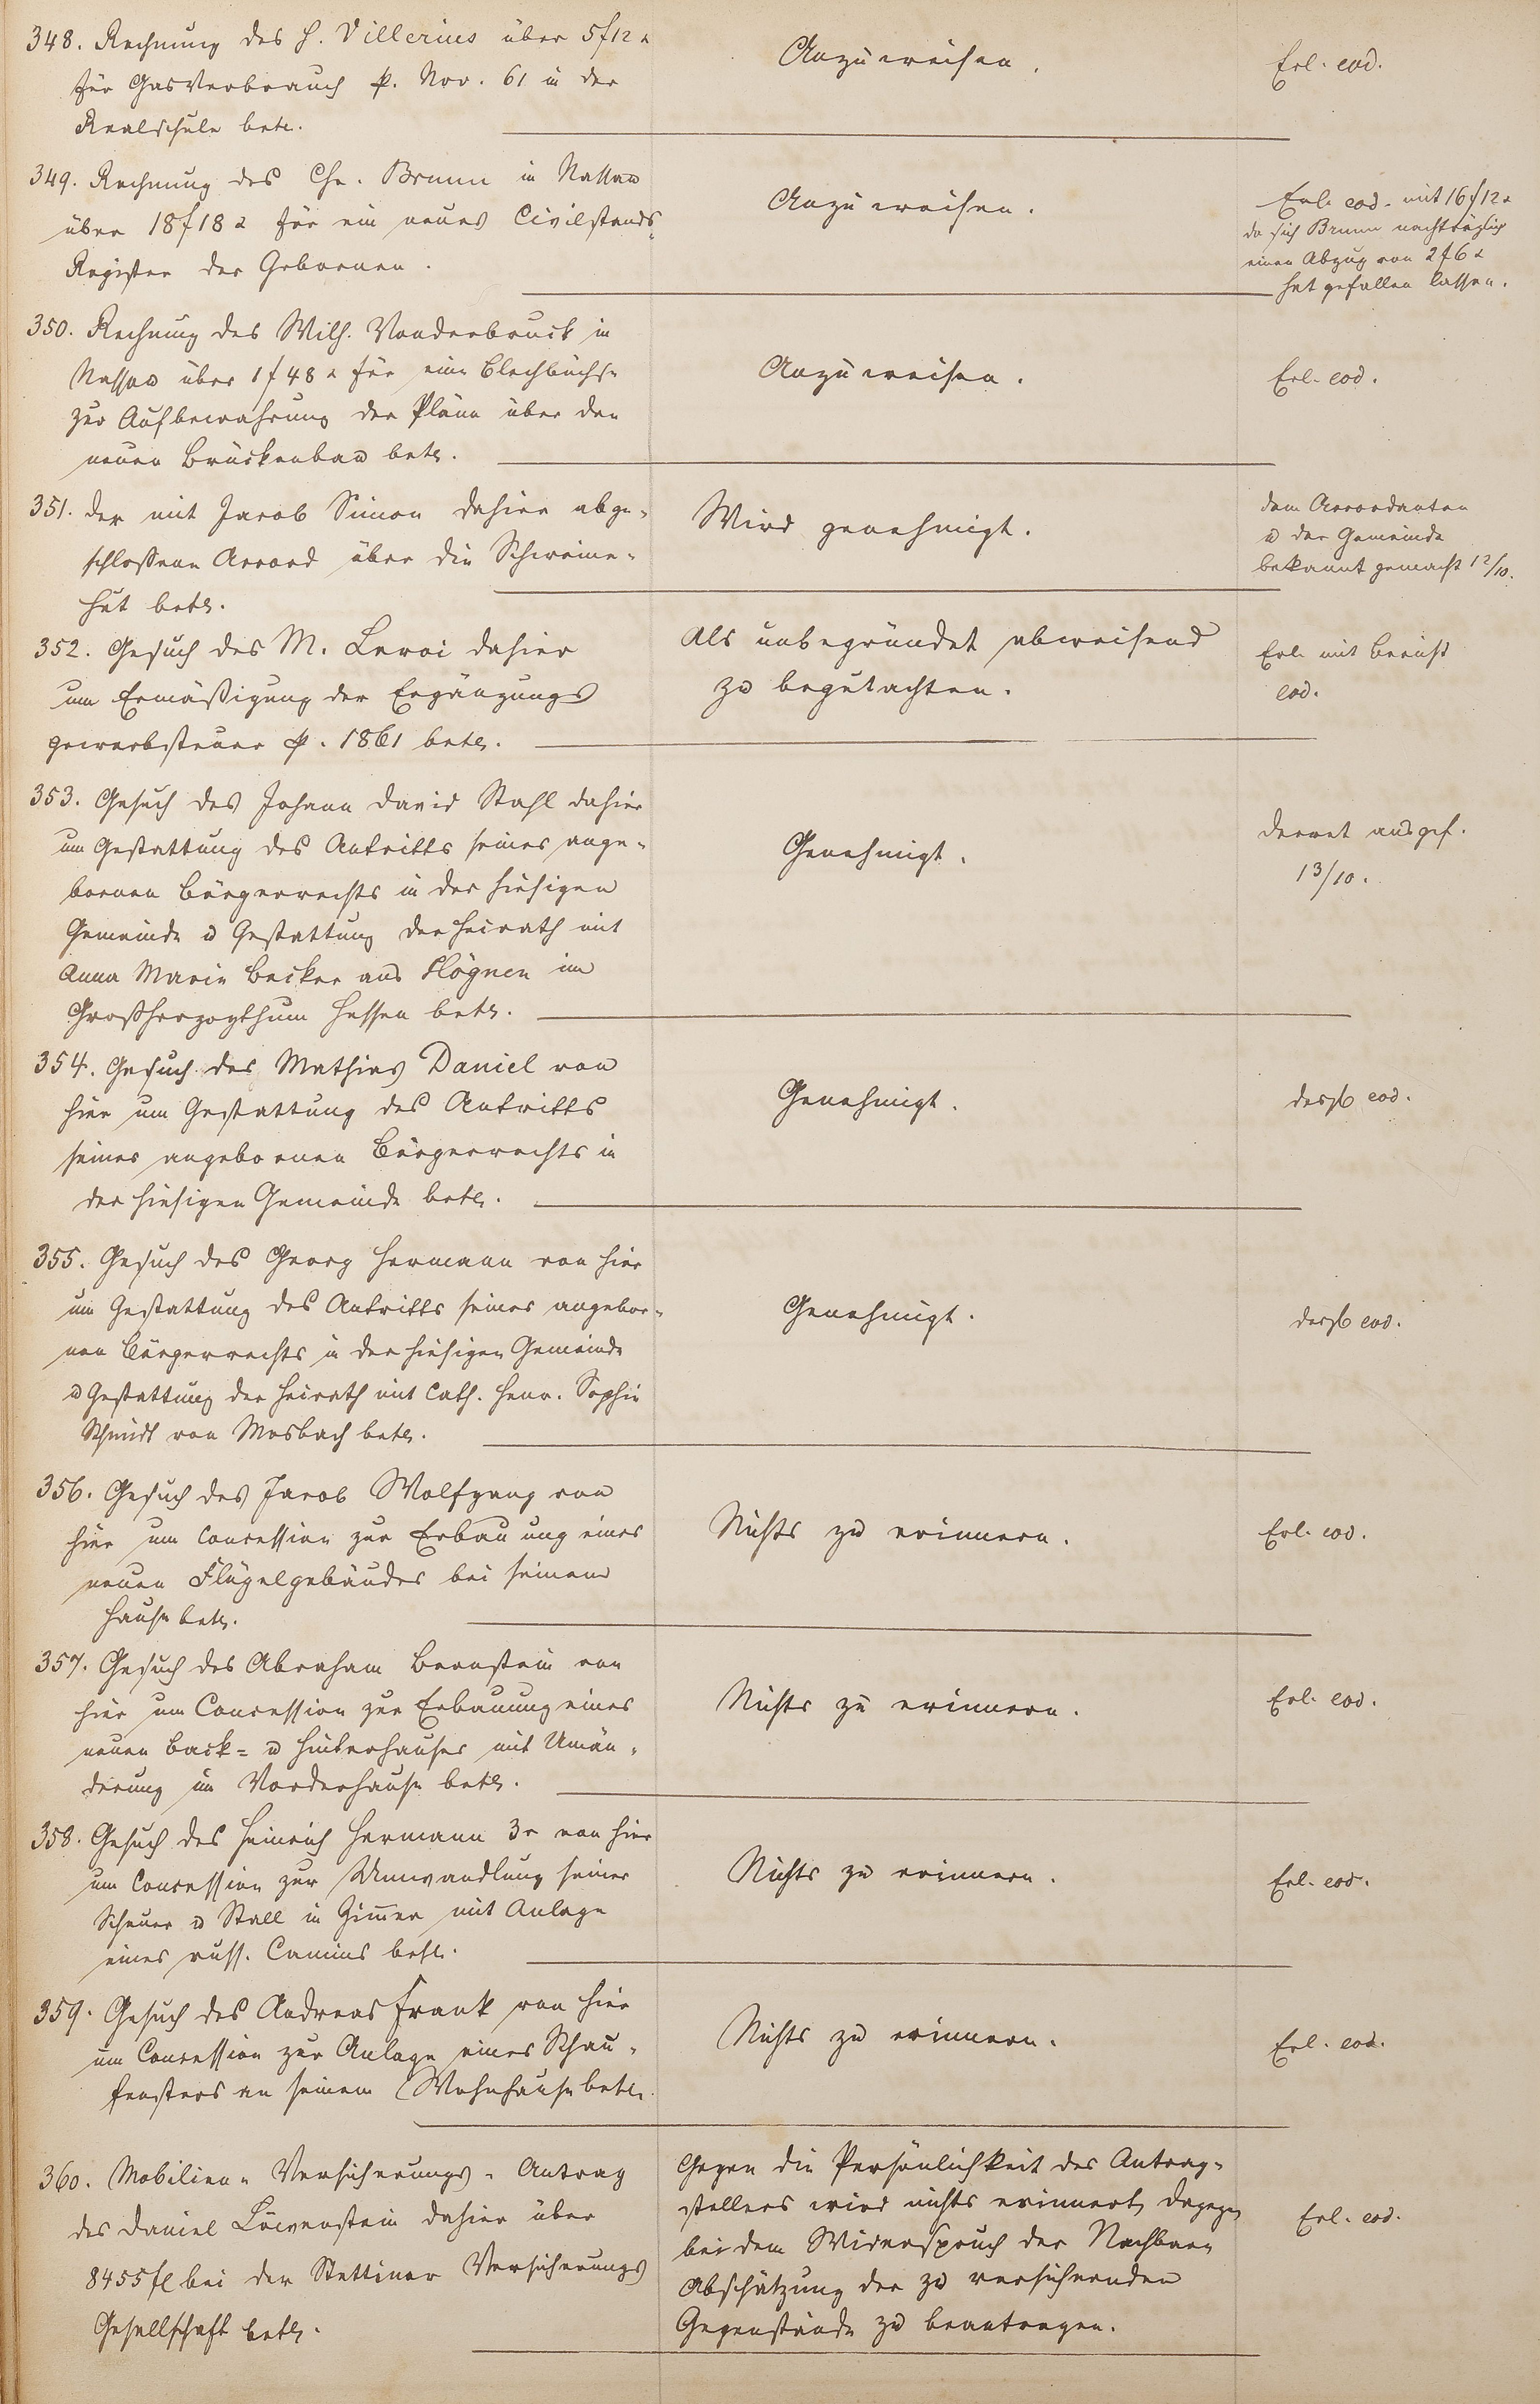 348. Rechnung des H. Villerius über 5 f 12 x
für Gasverbrauch p. Nov. 61 in der
Realschule betr.
Anzuweisen.
Erl. eod.
349. Rechnung des Chr. Brunn in Nassau
über 18 f 18 x für ein neues Civilstands-
Register der Geborenen.
Anzuweisen.
Erl. eod. mit 16 f 12 x
da sich Brunn nachträglich
einen Abzug von 2 f 6 x
hat gefallen lassen.
350. Rechnung des Wilh. Vonderbruck in
Nassau über 1 f 48 x für eine Blechbüchse
zur Aufbewahrung der Pläne über den
neuen Brückenbau betr.
Anzuweisen.
Erl. eod.
351. Der mit Jacob Simon dahier abge-
schlossene Accord über die Schweine-
hut betr.
Wird genehmigt.
Dem Accordanten
u der Gemeinde
bekannt gemacht 12/10.
352. Gesuch des M. Leroi dahier
um Ermäßigung der Ergänzungs
gewerbsteuer p. 1861 betr.
Als unbegründet abweisend
zu begutachten.
Erl. mit Bericht
eod.
353. Gesuch des Johann David Stahl dahier
um Gestattung des Antritts seines ange-
bornen Bürgerrechts in der hiesigen
Gemeinde u Gestattung der Heirath mit
Anna Marie Becker aus im
Großherzogthum Hessen betr.
Genehmigt.
Decret ausgef.
13/10.
354. Gesuch des Mathias Daniel von
hier um Gestattung des Antritts
seines angebornen Bürgerrechts in
der hiesigen Gemeinde betr.
Genehmigt.
eod.
355. Gesuch des Georg Hermann von hier
um Gestattung des Antritts seines angebor-
nen Bürgerrechts in der hiesigen Gemeinde
u Gestattung der Heirath mit Cath. Henr. Sophie
Schmidt von Mosbach betr.
Genehmigt.
eod.
356. Gesuch des Jacob Wolfgang von
hier um Concession zur Erbauung eines
neuen Flügelgebäudes bei seinem
Hause betr.
Nichts zu erinnern.
Erl. eod.
357. Gesuch des Abraham Bernstein von
hier um Concession zur Erbauung eines
neuen Back- u Hinterhauses mit Umän-
derung im Vorderhause betr.
Nichts zu erinnern.
Erl. eod.
358. Gesuch des Heinrich Hermann 3r von hier
um Concession zur Umwandlung seiner
Scheuer u Stall in Zimmer mit Anlage
eines russ. Camins betr.
Nichts zu erinnern.
Erl. eod.
359. Gesuch des Andreas Frank von hier
um Concession zur Anlage eines Schau-
fensters an seinem Wohnhause betr.
Nichts zu erinnern.
Erl. eod.
360. Mobilien-Versicherungs-Antrag
des Daniel Löwenstein dahier über
8455 fl bei der Stettiner Versicherungs
Gesellschaft betr.
Gegen die Persönlichkeit des Antrag-
stellers wird nichts erinnert, dagegen
bei dem Widerspruch der Nachbarn
Abschätzung der zu versichernden
Gegenstände zu beantragen.
Erl. eod.